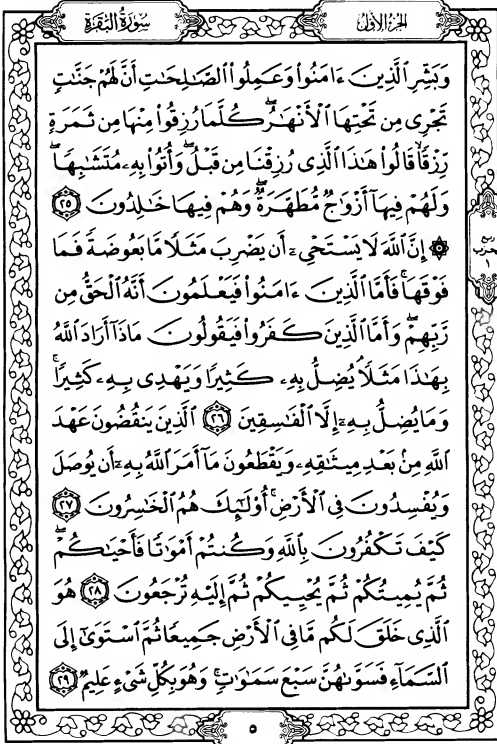 سُورَةُ البَقَرَةِ
الجُزءُ الأوَّلُ
وَبَشِّرِ ٱلَّذِينَ ءَامَنُوا۟ وَعَمِلُوا۟ ٱلصَّـٰلِحَـٰتِ أَنَّ لَهُمْ جَنَّـٰتٍ
تَجْرِى مِن تَحْتِهَا ٱلْأَنْهَـٰرُ ۖ كُلَّمَا رُزِقُوا۟ مِنْهَا مِن ثَمَرَةٍ
رِّزْقًا ۙ قَالُوا۟ هَـٰذَا ٱلَّذِى رُزِقْنَا مِن قَبْلُ ۖ وَأُتُوا۟ بِهِۦ مُتَشَـٰبِهًا ۖ
وَلَهُمْ فِيهَآ أَزْوَٰجٌ مُّطَهَّرَةٌ ۖ وَهُمْ فِيهَا خَـٰلِدُونَ ٢٥
۞ إِنَّ ٱللَّهَ لَا يَسْتَحْىِۦٓ أَن يَضْرِبَ مَثَلًا مَّا بَعُوضَةً فَمَا
فَوْقَهَا ۚ فَأَمَّا ٱلَّذِينَ ءَامَنُوا۟ فَيَعْلَمُونَ أَنَّهُ ٱلْحَقُّ مِن
رَّبِّهِمْ ۖ وَأَمَّا ٱلَّذِينَ كَفَرُوا۟ فَيَقُولُونَ مَاذَآ أَرَادَ ٱللَّهُ
بِهَـٰذَا مَثَلًا ۘ يُضِلُّ بِهِۦ كَثِيرًا وَيَهْدِى بِهِۦ كَثِيرًا ۚ
وَمَا يُضِلُّ بِهِۦٓ إِلَّا ٱلْفَـٰسِقِينَ ٢٦ ٱلَّذِينَ يَنقُضُونَ عَهْدَ
ٱللَّهِ مِنۢ بَعْدِ مِيثَـٰقِهِۦ وَيَقْطَعُونَ مَآ أَمَرَ ٱللَّهُ بِهِۦٓ أَن يُوصَلَ
وَيُفْسِدُونَ فِى ٱلْأَرْضِ ۚ أُو۟لَـٰٓئِكَ هُمُ ٱلْخَـٰسِرُونَ ٢٧
كَيْفَ تَكْفُرُونَ بِٱللَّهِ وَكُنتُمْ أَمْوَٰتًا فَأَحْيَـٰكُمْ ۖ
ثُمَّ يُمِيتُكُمْ ثُمَّ يُحْيِيكُمْ ثُمَّ إِلَيْهِ تُرْجَعُونَ ٢٨ هُوَ
ٱلَّذِى خَلَقَ لَكُم مَّا فِى ٱلْأَرْضِ جَمِيعًا ثُمَّ ٱسْتَوَىٰٓ إِلَى
ٱلسَّمَآءِ فَسَوَّىٰهُنَّ سَبْعَ سَمَـٰوَٰتٍ ۚ وَهُوَ بِكُلِّ شَىْءٍ عَلِيمٌ ٢٩
ربع
الحزب
١
٥